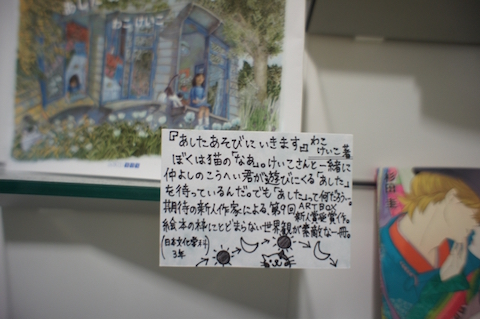 あしたに
わこ けいこ
『あしたあそびにいきます。』 わこ けいこ 著
ぼくは猫の「なあ」。けいこさんと一緒に
仲よしのこうへい君が遊びにくる「あした」
を待っているんだ。でも「あした」って何だろう…。
期待の新人作家による、第9回 ARTBOX
新人賞受賞作。
絵本の枠にとどまらない世界観が素敵な一冊。
(日本文化学科
3年